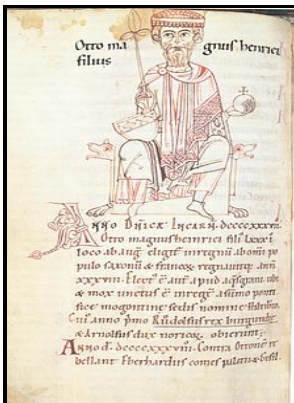 Otto ma gnus henrici
filius
Anno dñicę incarn. dccccxxxvii.
Otto magnus henrici fili lxxx i
loco ab aug. eligit in regnū ab omi po
pulo saxonū & francoꝝ regnauitque ann
xxxviii. Elect ē aut apud aqsgrani
& mox unctus ē in regē a sūmo ponti
fice mogontine sedis nomine
Cui anno p̄mo Růdolfus rex burgundię
& Arnolfus dux noricoꝝ obierunt.
Anno d. dccccxxxviii. Contra Ottonē re
bellant Eberhardus comes palatin &